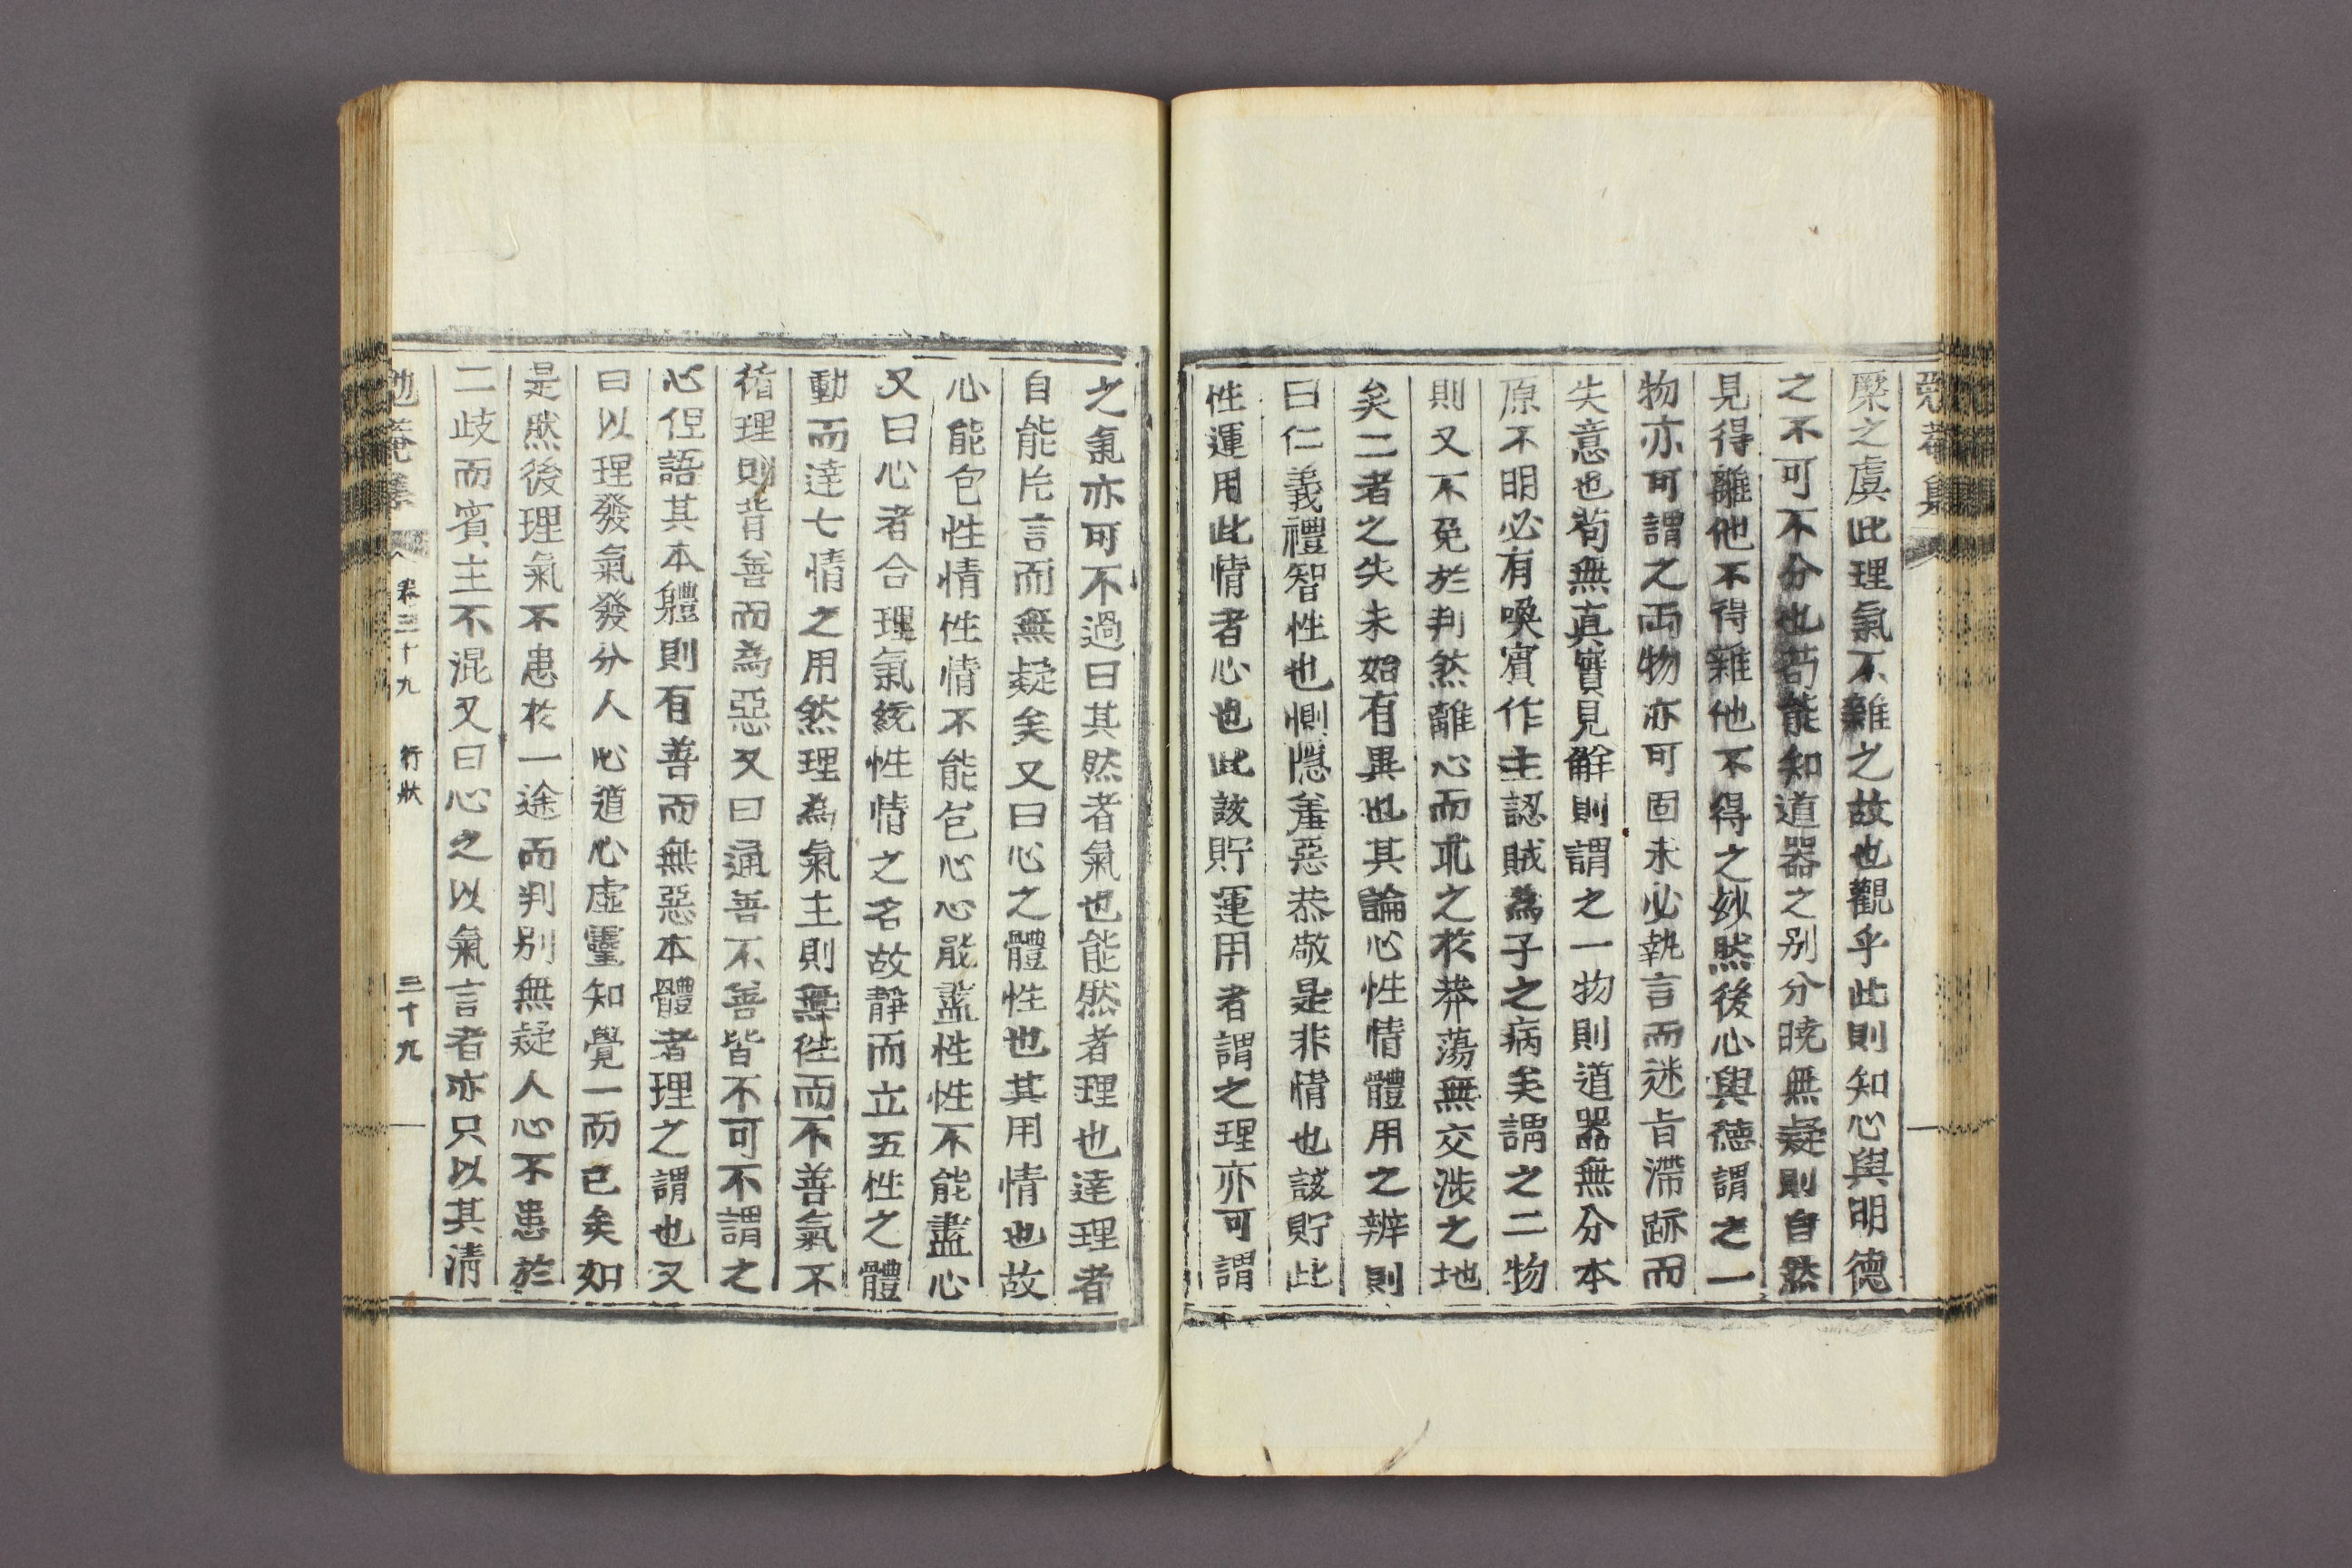 菴集
㮚之虞此理氣不雜之故也觀乎此則知心與明德
之不可不分也苟能知道器之别分曉無疑則自然
見得離他不得雜他不得之妙然後心與德謂之一
物亦可謂之兩物亦可固未必執言而迷旨滯跡而
失意也苟無真實見解則謂之一物則道器無分本
原不明必有喚賓作主認賊為子之病矣謂之二物
則又不免於判然離心而求之於莽蕩無交涉之地
矣二者之失未始有異也其論心性情體用之辨則
曰仁義禮智性也惻隱羞惡恭敬是非情也該貯此
性運用此情者心也此該貯運用者謂之理亦可謂
之氣亦可不過曰其然者氣也能然者理也達理者
自能片言而無疑矣又曰心之體性也其用情也故
心能包性情性情不能包心心能盡性性不能盡心
又曰心者合理氣統性情之名故靜而立五性之體
動而達七情之用然理為氣主則無徃而不善氣不
循理則背善而為惡又曰通善不善皆不可不謂之
心但語其本體則有善而無惡本體者理之謂也又
曰以理發氣發分人心道心虛靈知覺一而已矣如
是然後理氣不患於一途而判别無疑人心不患於
二歧而賓主不混又曰心之以氣言者亦只以其淸
勉菴集 卷三十九 行狀 三十九